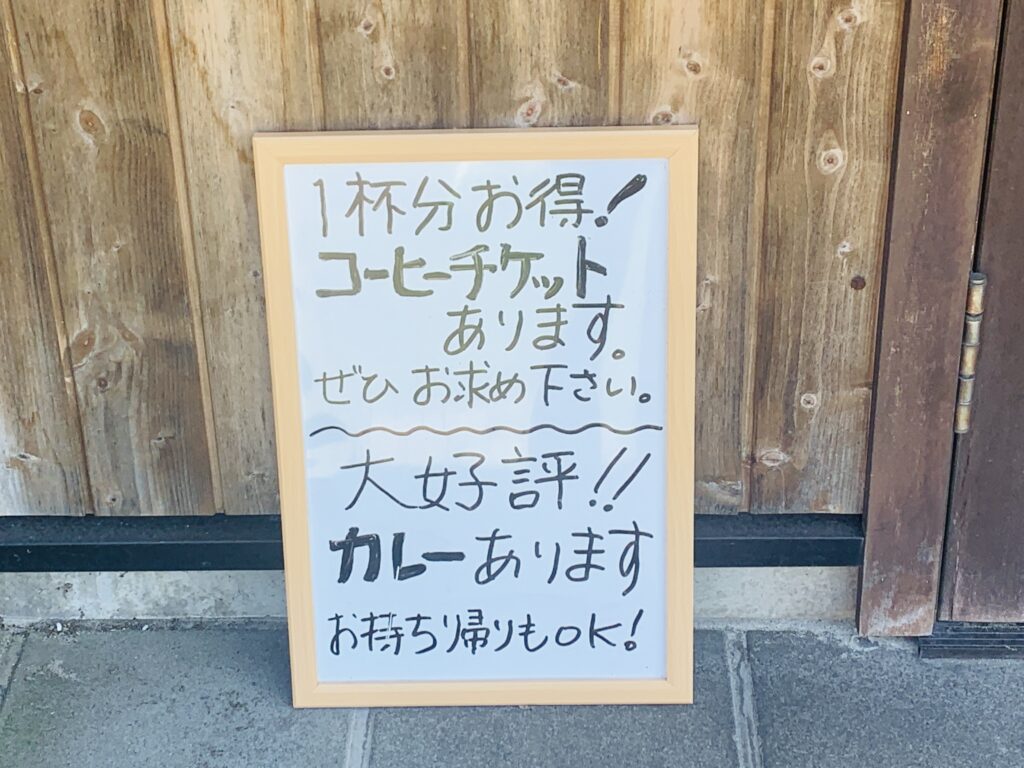 1杯分お得!
コーヒーチケット
あります。
ぜひお求め下さい。
大好評!!
カレーあります
お持ち帰りもOK!